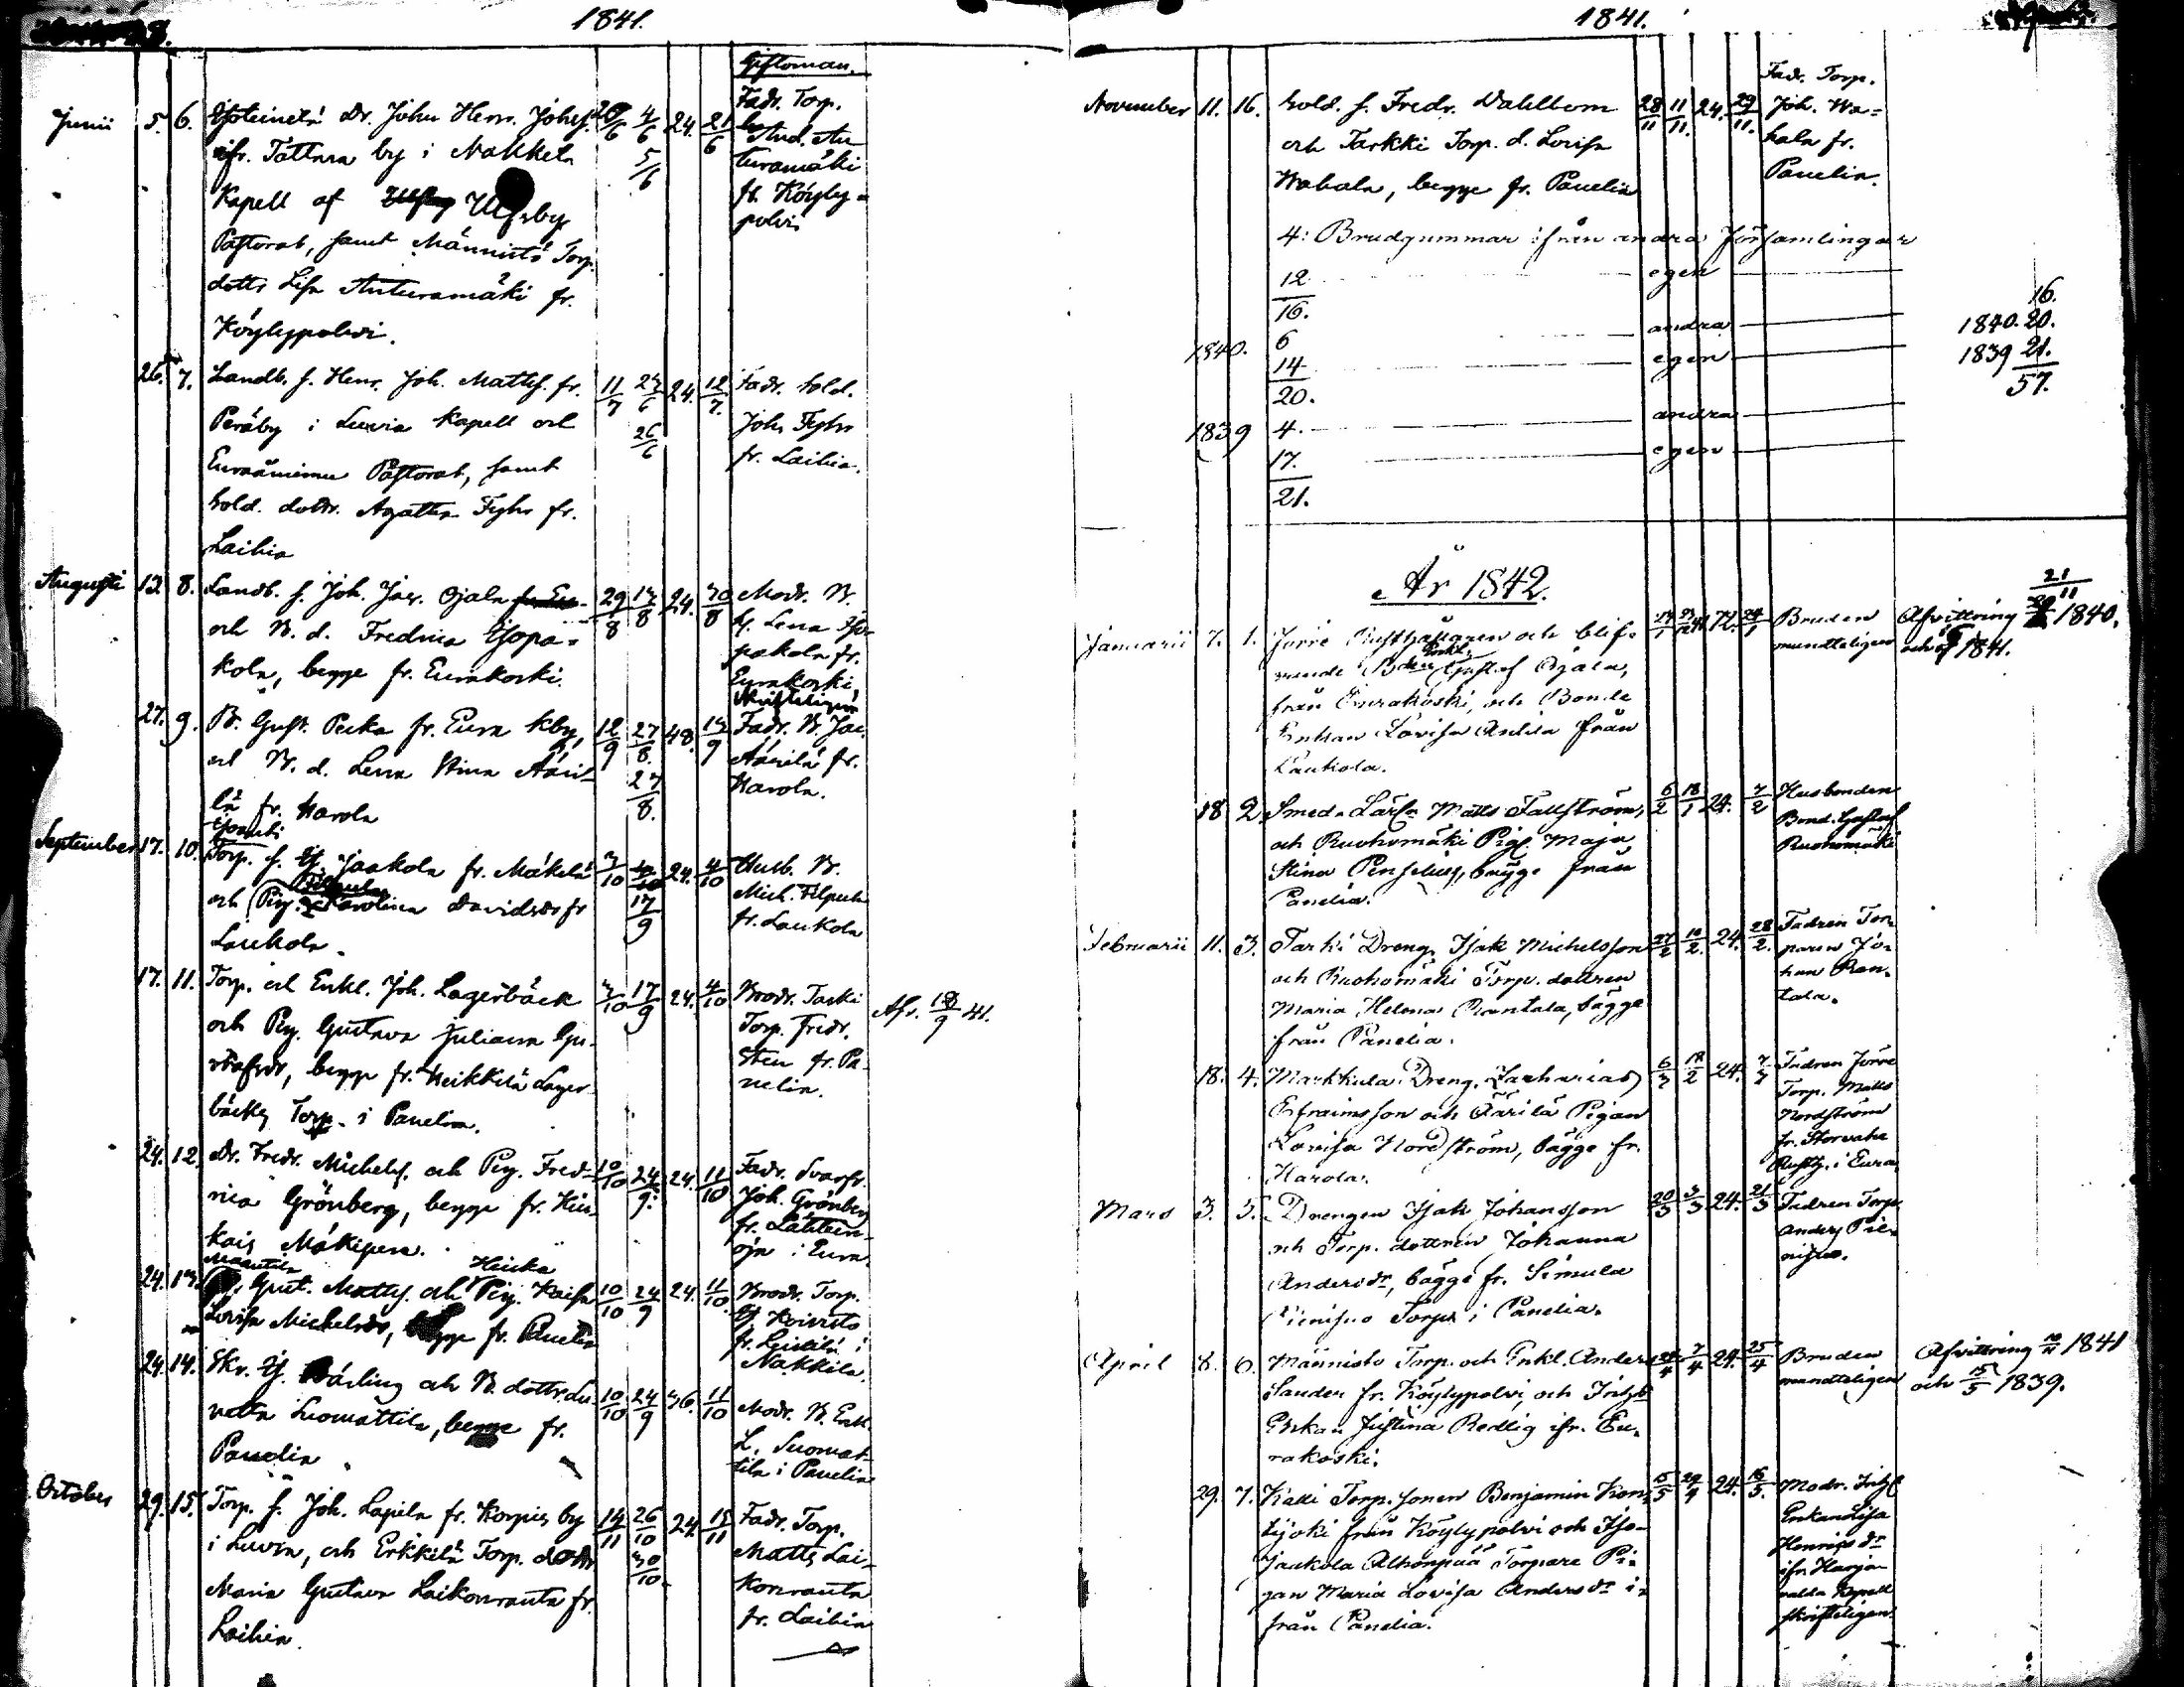 1841.
Giftoman.
Junii 5. 6. Isoteinetä Dr. Johan Henr. Johss. 20/6 4/6 24. 21/6 Fadr. Torp.
ifr. Tattara by i Nakkila 5/6 And. An-
Kapell af Ulfsby turamäki
Pastorat, samt Männistö Torp. fr. Köyly-
dottr Lisa Anturamäki fr. polvi
Köylypolvi.
26. 7. Landb. s. Henr. Joh. Matts. fr. 11/7 24/6 24. 12/7. Fadr. Sold.
Peräby i Luvia Kapell och 26/6 Joh. Fyhr
Euraåminne Pastorat, samt fr. Laihia.
Sold. dottr. Agatha Fyhr fr.
Laihia
Augusti 13 8. Landb. s. Joh. Jac. Ojala 29/8 13/8 24. 30/8 Modr. B.
och B. d. Fredrica Isopa- Lena Iso-
kola, begge fr. Eurakoski. pakola fr.
Eurakoski,
Skrifteligen
27. 9. B. Gust. Pecka fr. Eura Kby, 12/9 27/8. 48. 13/9 Fadr. B. Jac.
och B. d. Lena Stina Ääri- 27/8. Äärilä fr.
lä fr. Harola Harola.
September 17. 10. Torp. s. Jaakola fr. Mäkelä 3/10 24. 4/10 Husb. B.
och Pig. Karolina Davidsdr fr 17/9 Mich. Filpula
Laukola. fr. Laukola
17. 11. Torp. och Enkl. Joh. Lagerbäck 3/10 17/9 24. 4/10 Brodr. Tarki
och Pig. Gustava Juliana Gu- Torp. Fredr. Afr. 18/9 41.
stafsdr, begge fr. Heikkilä Lager- Sten fr. Pa-
bäcks Torp. i Panelia. nelia.
24. 12. Dr. Fredr. Michels. och Pig. Fred- 10/10 24/9. 24. 11/10 Fadr. Svarfv.
rica Grönberg, begge fr. Hin- Joh. Grönberg
kais Mäkipere. fr. Lähteen-
oja i Eura.
24. 13. Gust. Matts. och Hinka Pig. Kaisa 10/10 24/9 24. 11/10. Brodr. Torp.
Lovisa Michelsdr, begge fr. Panelia Koivisto
fr. Leistilä i
Nakkila.
24. 14. Skr. Bärling och B. dottr. Lo- 10/10 24/9 36. 11/10 Modr. B. Enk.
visa Suomattila, begge fr. L. Suomat-
Panelia tila i Panelia
October 29. 15. Torp. s. Joh. Lapila fr. Korpis by 14/11 26/10 24. 15/11 Fadr. Torp.
i Luvia, och Erkkilä Torp. dottr 30/10. Matts Lai-
Maria Gustava Laikonranta fr. konranta
Laihia. fr. Laihia
1841.
November 11. 16. Sold. s. Fredr. Dahlbom 28/11 11/11. 24. 29/11. Fadr. Torp.
och Tarkki Torp. d. Lovisa Joh. Wa-
Wahala, begge fr. Panelia hala fr.
Panelia.
4: Brudgummar ifrån andra Församlingar
12 egen
16. 16.
1840. 6 andra 1840. 20.
14 egen 1839 21.
20. 57.
1839 4. andra
17. egen
21.
År 1842.
Januarii 7. 1. Jorre Rusthållaren och blif- 72. 24/1 Bruden Afvittring 1840.
vande Bden Enkl. Gustaf Ojala, mundteligen och 1841.
från Eurakoski, och Bonde
Enkan Lovisa Anttila från
Laukola.
18 2. Smed. Lärl. Matts Fallström, 6/2 18/1 24. 7/2 Husbonden
och Ruohomäki Pig. Maja Bond. Gustaf
Stina Penselius, bägge från Ruohomäki
Panelia.
Februarii 11. 3. Tarki Dreng. Isak Michelsson 27/2 24. 28/2. Fadren Tor-
och Ruohomäki Torp. dottren paren Jo-
Maria Helena Rantala, bägge han Ran-
från Panelia. tala.
18. 4. Markkula Dreng. Zacharias 6/3 18/2 24. 7/3 Fadren Jorre
Efraimsson och Äärilä Pigan Torp. Matts
Lovisa Nordström, bägge fr. Nordström
Harola. fr. Storvaha
Rusth. i Eura
Mars 3. 5. Drengen Isak Johansson 20/3 3/3 24. 21/3 Fadren Torp.
och Torp. dottren Johanna Anders Pie-
Andersdr, bägge fr. Simula nisuo.
Pienisuo Torp i Panelia.
April 8. 6. Männistö Torp. och Enkl. Anders 24/4 7/4 24. 25/4 Bruden Afvittring 1841
Sander fr. Köylypolvi, och Inhys mundteligen och 5/5 1839.
Enkan Justina Redlig ifr. Eu-
rakoski.
29. 7. Katti Torp. sonen Benjamin Kon- 15/5 29/4 24. 16/5. Modr. Inhys
tijoki från Köylypolvi och Iso- Enkan Lisa
jaukola Alhonpää Torpare Pi- Henricsdr
gan Maria Lovisa Andersdr i- ifr. Harja-
från Panelia. valta Kapell
skrifteligen.